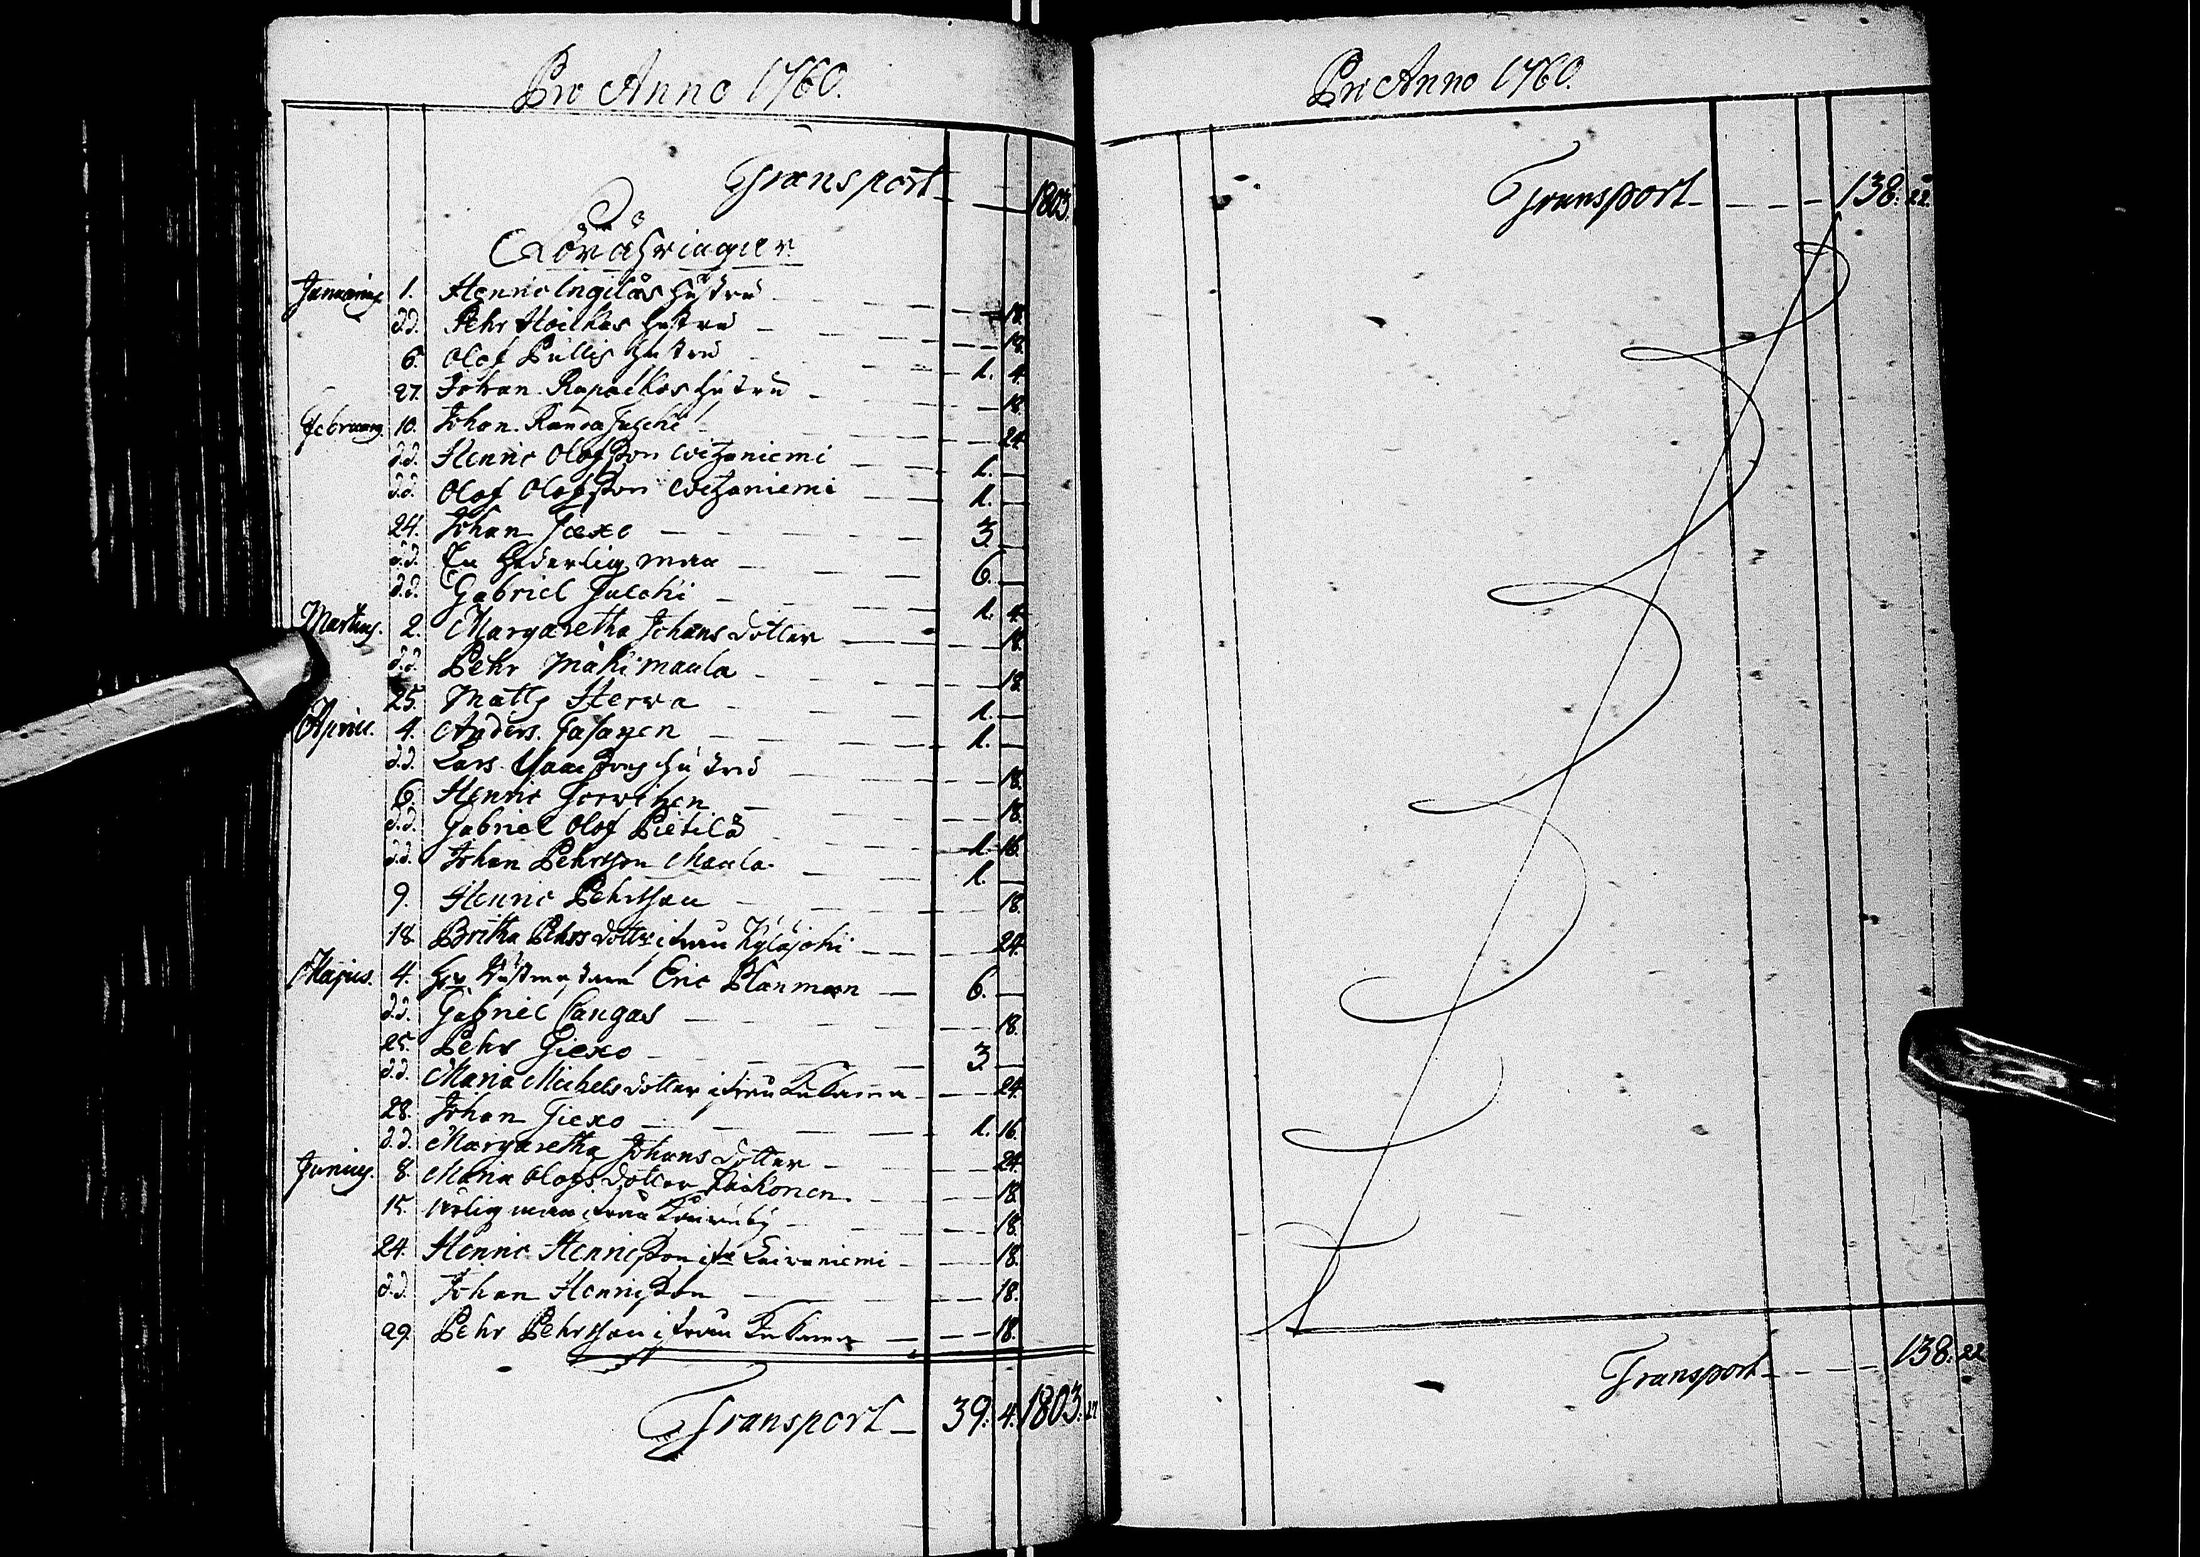 Pro Anno 1760.
Transport 1803.
Januarius 1. Henric Ingilas hustru 18.
d.d. Pehr Hoickas hustru 18.
6. Olof Pullis hustru 1. 4.
27. Johan Rapackos hustru 18.
Februarius 10. Johan 24.
d.d. Henric Olofsson Wizaniemi 1.
d.d. Olof Olofsson Wizaniemi 1.
24. Johan Jæxo 3.
d.d. En hederlig man 6.
d.d. Gabriel 1. 4.
Martius. 2. Margaretha Johans dotter 18.
d.d. Pehr Mäkimaula 18.
25. Matts Herva 1.
Aprill. 4. Anders 1.
d.d. Lars hustru 18.
6. Henric 18.
d.d. Gabriel Olof Pietilä 1. 16.
d.d. Johan Pehrsson Maula 1.
9. Henric Pehrsson 18.
18. Britha Pehrs dotter ifrån Kyläjoki 24.
Majus. 4. Eric Planman 6.
d.d. Gabriel Cangas 18.
25. Pehr Giexo 3.
d.d. Maria Michels dotter ifrån 24.
28. Johan Giexo 1. 16.
d.d. Margaretha Johans dotter 24.
Junius. 8. Maria Olofs dotter 18.
15. ärlig man ifrån 18.
24. Henric Henricsson Laivaniemi 18.
d.d. Johan Henricsson 18.
29. Pehr Pehrsson ifrån 18.
Transport 39. 4. 1803. 22
Pro Anno 1760.
Transport 138. 22.
Transport 138. 22